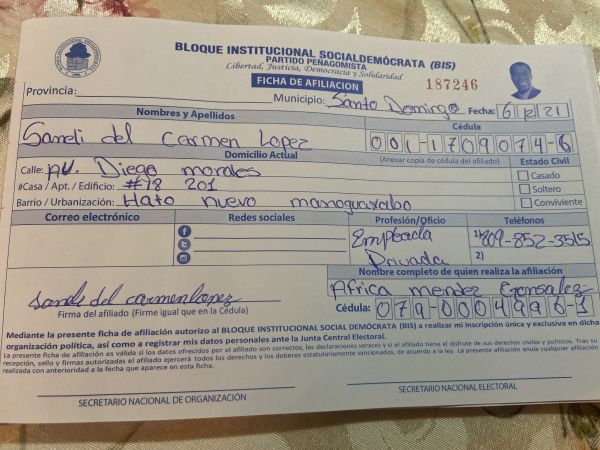 BLOQUE INSTITUCIONAL SOCIALDEMÓCRATA (BIS)
PARTIDO PEÑAGOMISTA
Libertad, Justicia, Democracia y Solidaridad
FICHA DE AFILIACION
187246
Provincia:
Municipio: Santo Domingo Fecha: 6 12 21
Nombres y Apellidos
Cédula
Sandi del Carmen Lopez
001-1709074-6
Domicilio Actual
(Anexar copia de cédula del afiliado)
Estado Civil
Calle: AV. Diego morales
Casado
#Casa / Apt. / Edificio: #78 201
Soltero
Barrio / Urbanización: Hato nuevo manoguayabo
Conviviente
Correo electrónico
Redes sociales
Profesión/Oficio
Teléfonos
Empleada
1) 809-852-3515
Privada
2)
Nombre completo de quien realiza la afiliación
Africa mendez Gonzalez
sandi del carmen lopez
Firma del afiliado (Firme igual que en la Cédula)
Cédula: 079-0004996-1
Mediante la presente ficha de afiliación autorizo al BLOQUE INSTITUCIONAL SOCIAL DEMÓCRATA (BIS) a realizar mi inscripción única y exclusiva en dicha
organización política, así como a registrar mis datos personales ante la Junta Central Electoral.
La presente ficha de afiliación es válida si los datos ofrecidos por el afiliado son correctos, las declaraciones veraces y si el afiliado tiene el disfrute de sus derechos civiles y políticos. Tras su
recepción, sello y firmas autorizadas el afiliado ejercerá todos los derechos y los deberes estatutariamente sancionados, de acuerdo a la ley. La presente afiliación anula cualquier afiliación
realizada con anterioridad a la fecha que aparece en esta ficha.
SECRETARIO NACIONAL DE ORGANIZACIÓN
SECRETARIO NACIONAL ELECTORAL